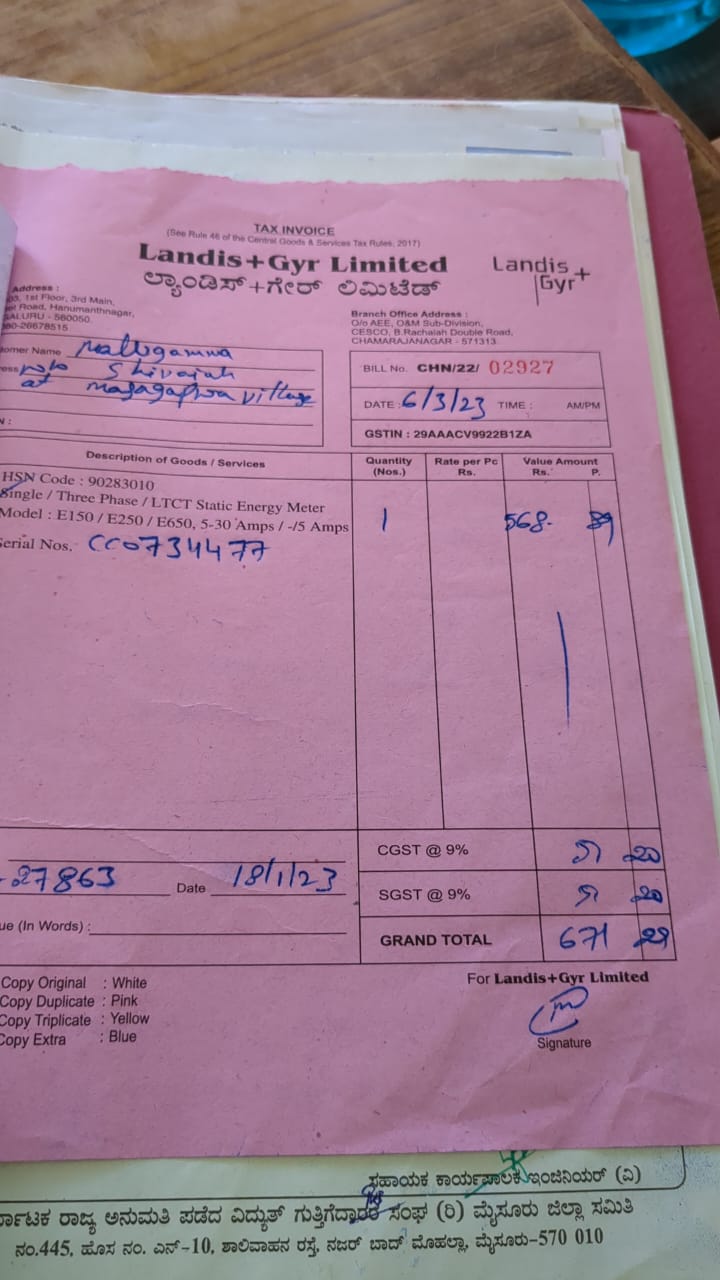 TAX INVOICE
(See Rule 46 of the Central Goods & Services Tax Rules, 2017)
Landis+Gyr Limited
ಲ್ಯಾಂಡಿಸ್+ಗೇರ್ ಲಿಮಿಟೆಡ್
Landis+
Gyr
Address :
1st Floor, 3rd Main,
Road, Hanumanthnagar,
560050.
26678515
Branch Office Address :
O/o AEE, O&M Sub-Division,
CESCO, B.Rachaiah Double Road,
CHAMARAJANAGAR - 571313
Name
Shivaiah
at village
BILL No. CHN/22/ 02927
DATE : 6/3/23 TIME : AM/PM
GSTIN : 29AAACV9922B1ZA
Description of Goods / Services Quantity (Nos.) Rate per Pc Rs. Value Amount Rs. P.
HSN Code : 90283010
Single / Three Phase / LTCT Static Energy Meter
Model : E150 / E250 / E650, 5-30 Amps / -/5 Amps 1 568. 89
Serial Nos. CC0734477
CGST @ 9% 51 20
27863 Date 18/1/23
SGST @ 9% 51 20
(In Words) :
GRAND TOTAL 671 29
Copy Original : White
Copy Duplicate : Pink
Copy Triplicate : Yellow
Copy Extra : Blue
For Landis+Gyr Limited
Signature
ಸಹಾಯಕ ಕಾರ್ಯಪಾಲಕ ಇಂಜಿನಿಯರ್ (ವಿ)
ರಾಜ್ಯ ಅನುಮತಿ ಪಡೆದ ವಿದ್ಯುತ್ ಗುತ್ತಿಗೆದ್ದಾರರ ಸಂಘ (ರಿ) ಮೈಸೂರು ಜಿಲ್ಲಾ ಸಮಿತಿ
ನಂ.445, ಹೊಸ ನಂ. ಎನ್-10, ಶಾಲಿವಾಹನ ರಸ್ತೆ, ನಜರ್ ಬಾದ್ ಮೊಹಲ್ಲಾ, ಮೈಸೂರು-570 010